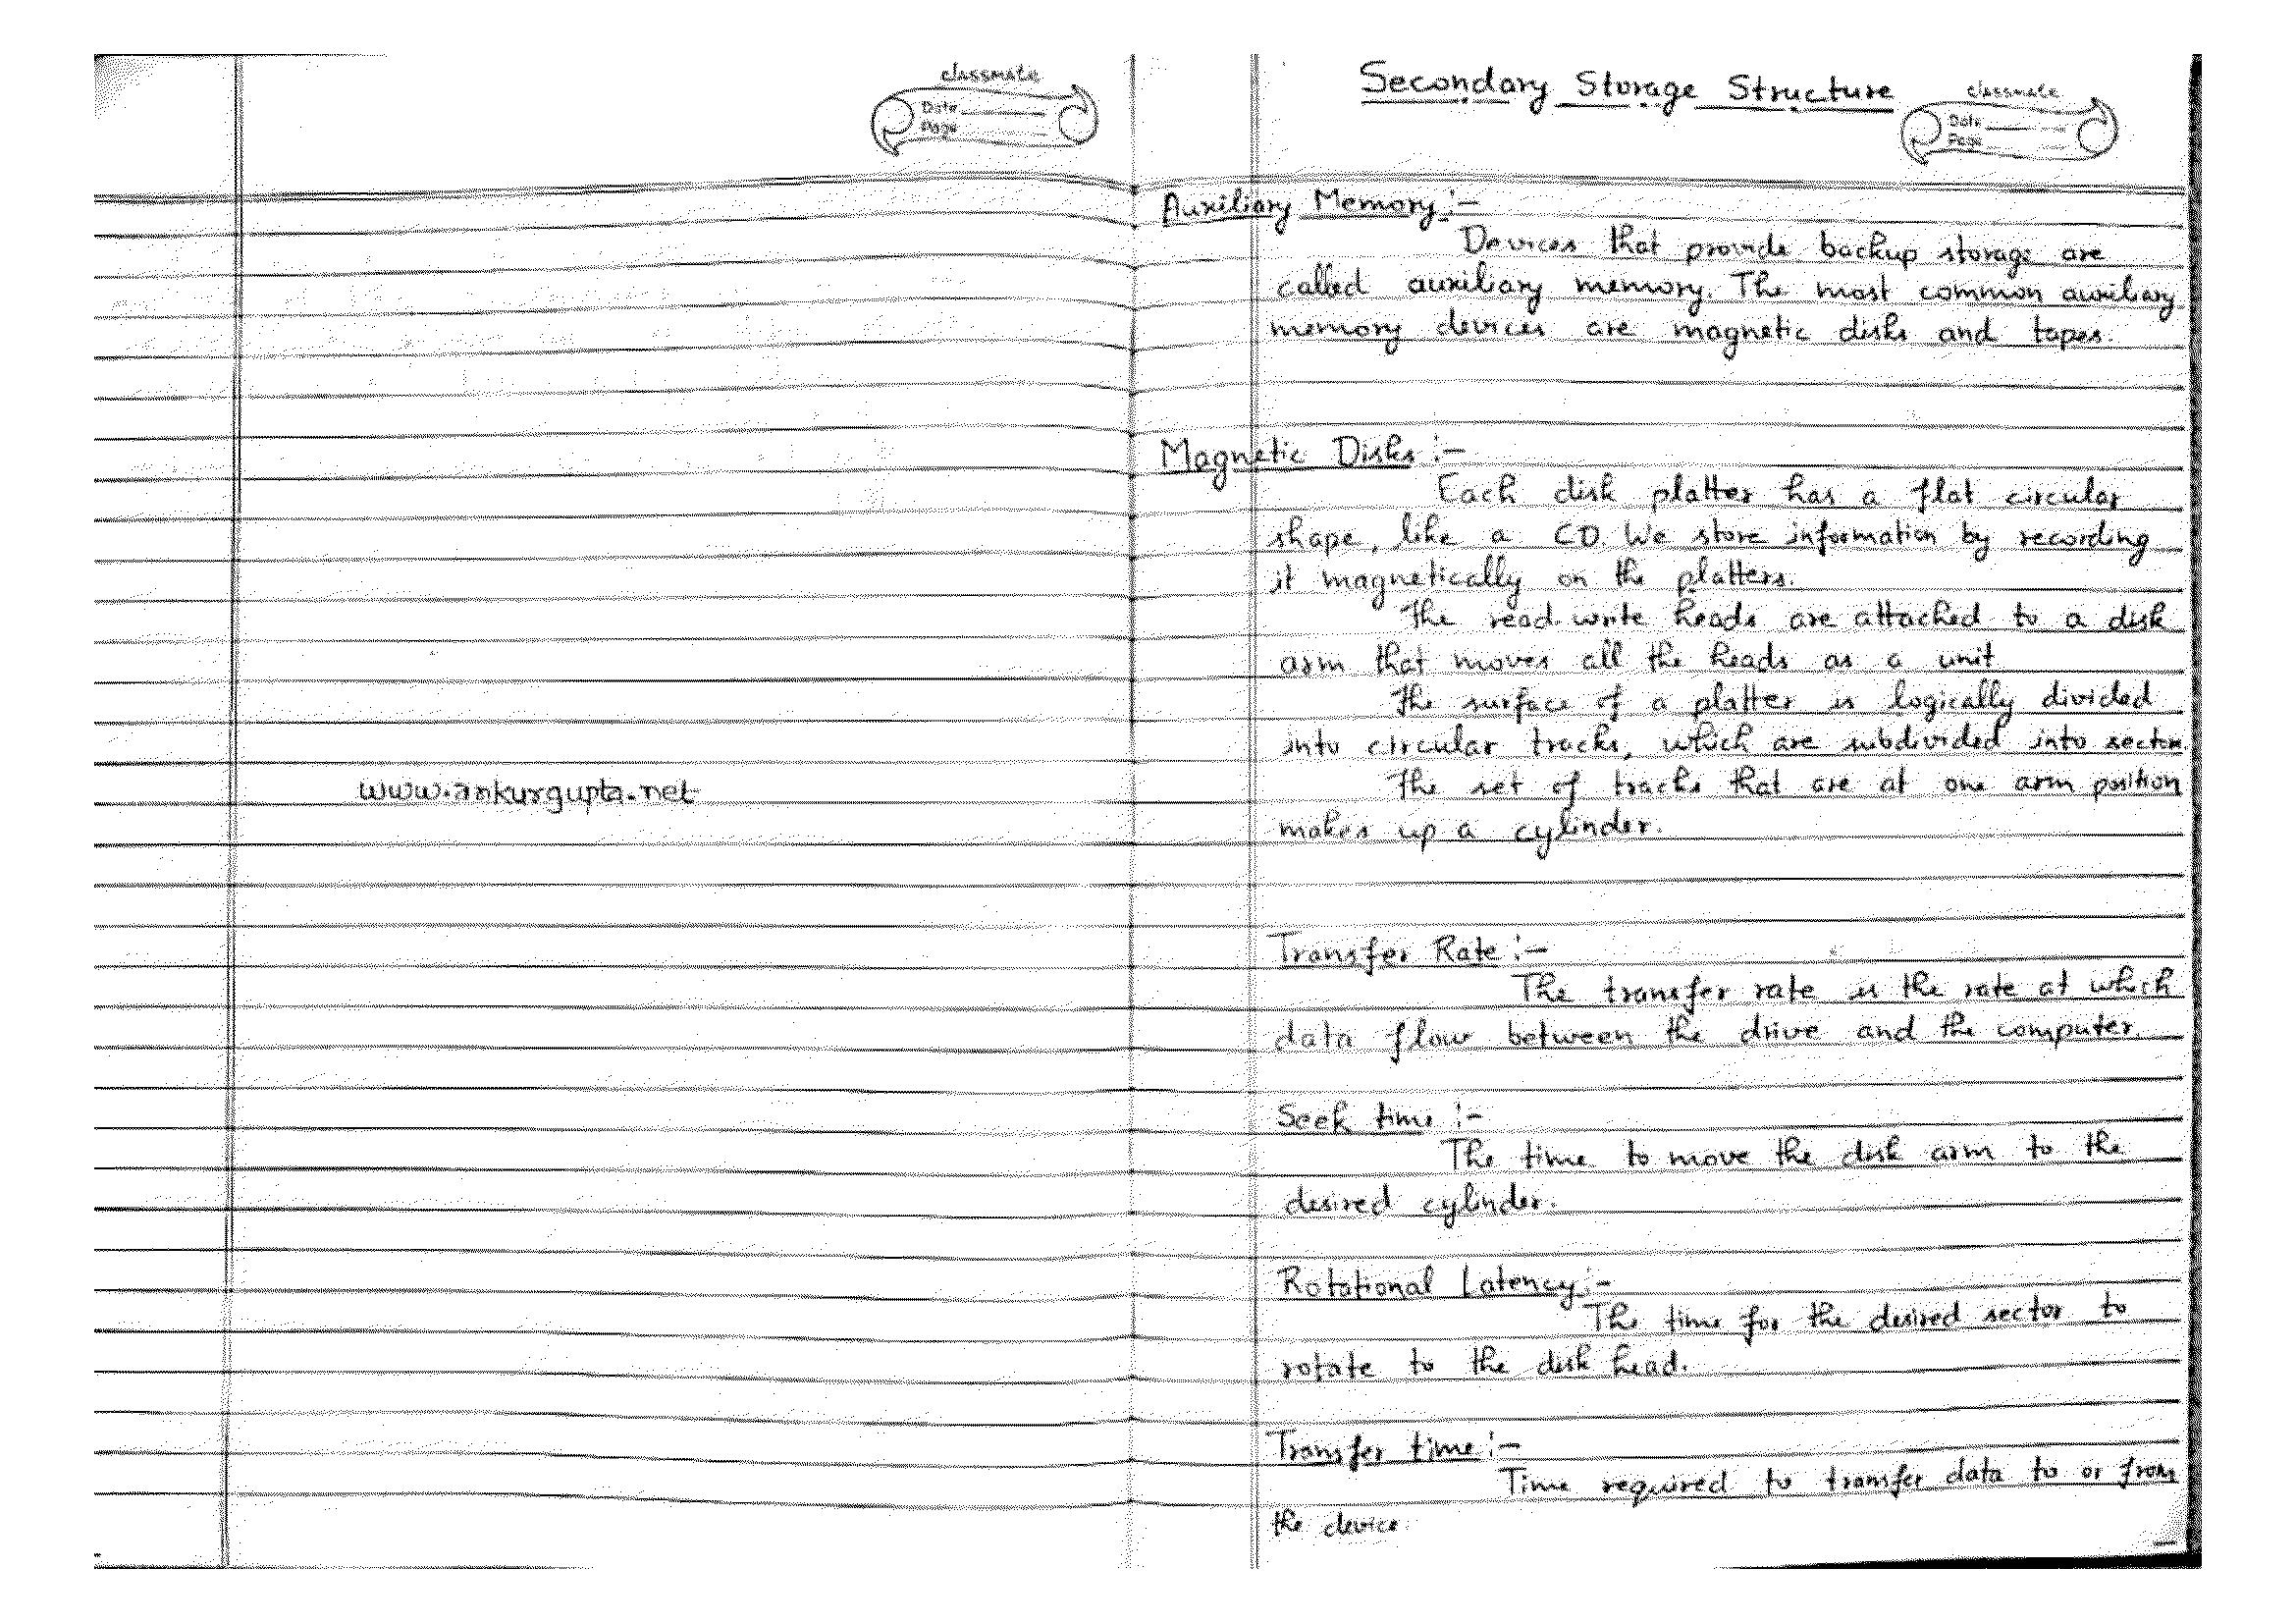 classmate
Date
Page
www.ankurgupta.net
Secondary Storage Structure
classmate
Date
Page
Auxiliary Memory :-
Devices that provide backup storage are
called auxiliary memory. The most common auxiliary
memory devices are magnetic disks and tapes.
Magnetic Disks :-
Each disk platter has a flat circular
shape, like a CD. We store information by recording
it magnetically on the platters.
The read write heads are attached to a disk
arm that moves all the heads as a unit
The surface of a platter is logically divided
into circular tracks, which are subdivided into sectors.
The set of tracks that are at one arm position
makes up a cylinder.
Transfer Rate :-
The transfer rate is the rate at which
data flow between the drive and the computer.
Seek time :-
The time to move the disk arm to the
desired cylinder.
Rotational Latency :-
The time for the desired sector to
rotate to the disk head.
Transfer time :-
Time required to transfer data to or from
the device.